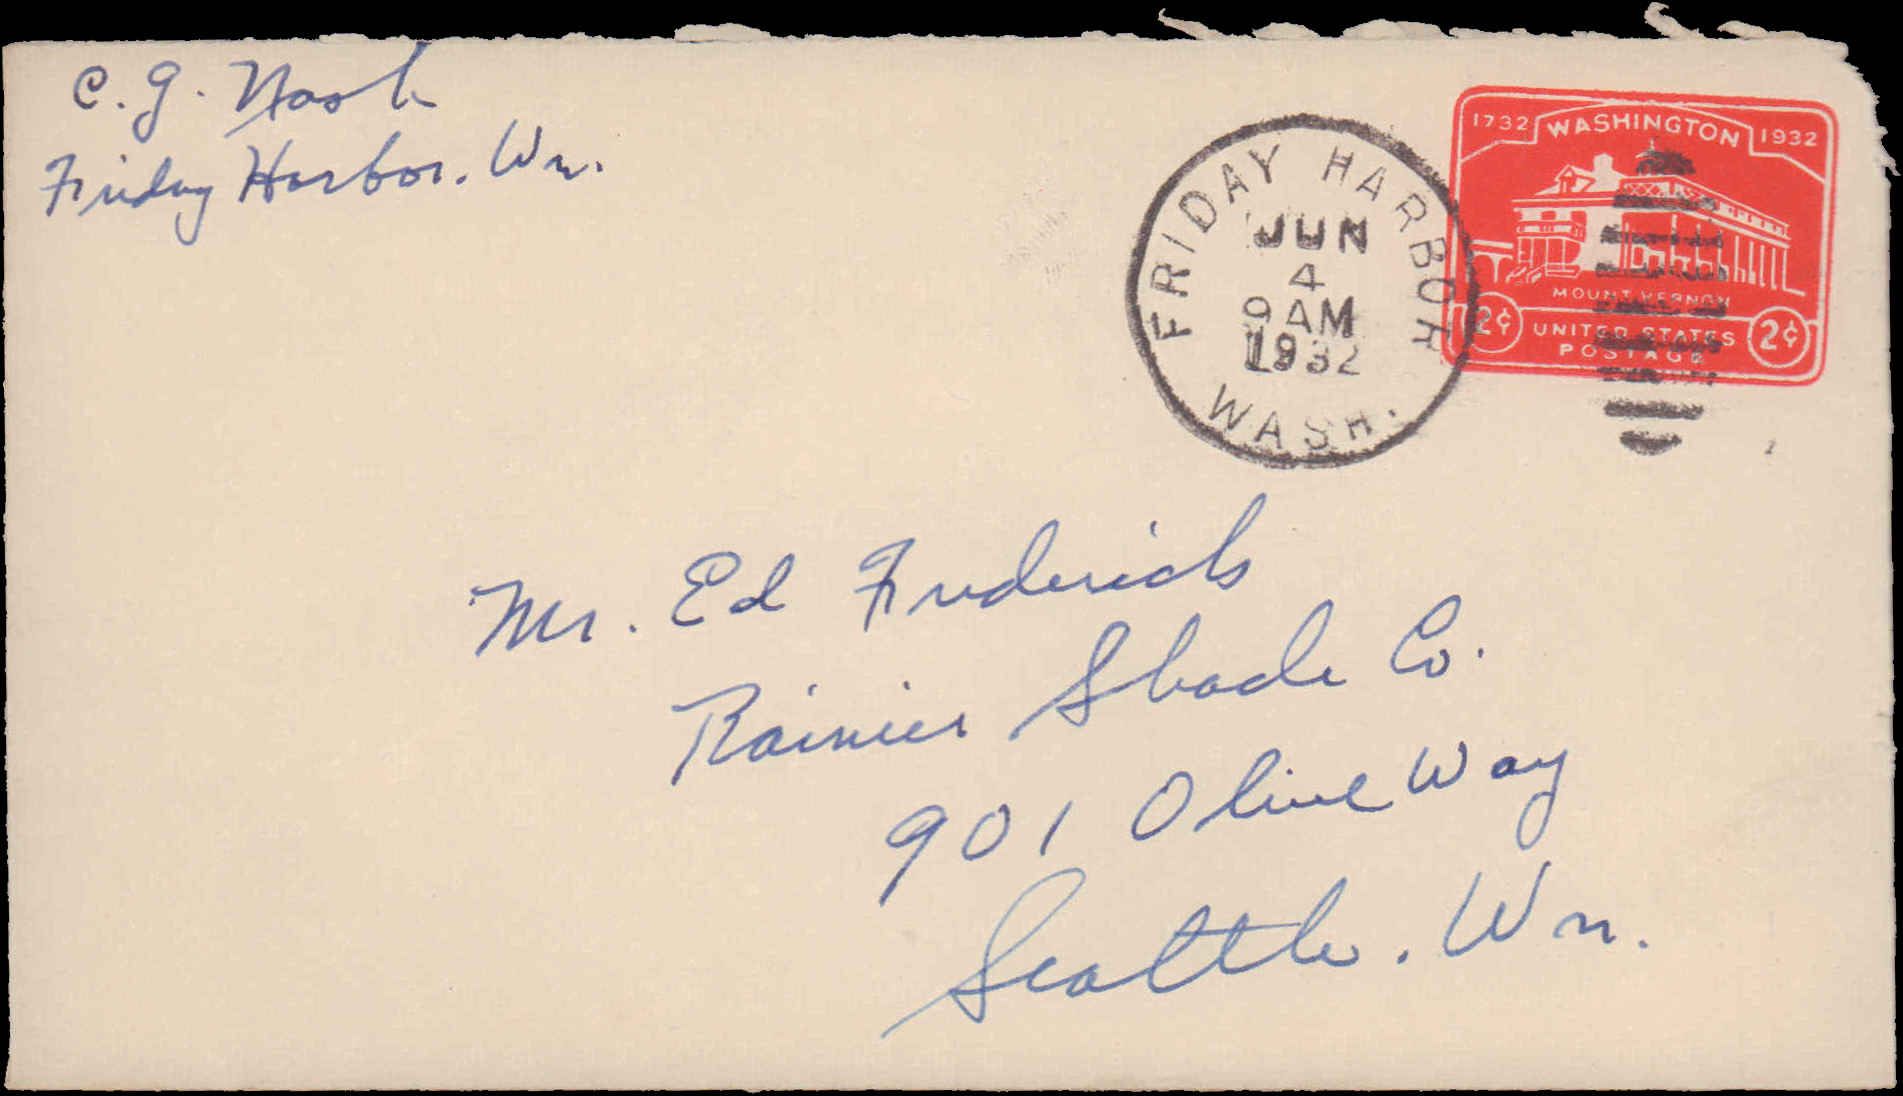 C. G. Nash
Friday Harbor. Wn.
FRIDAY HARBOR
JUN
4
9 AM
1932
WASH.
1732 WASHINGTON 1932
MOUNT VERNON
2¢ UNITED STATES 2¢
POSTAGE
Mr. Ed Fredericks
Rainier Shade Co.
901 Olive Way
Seattle. Wn.